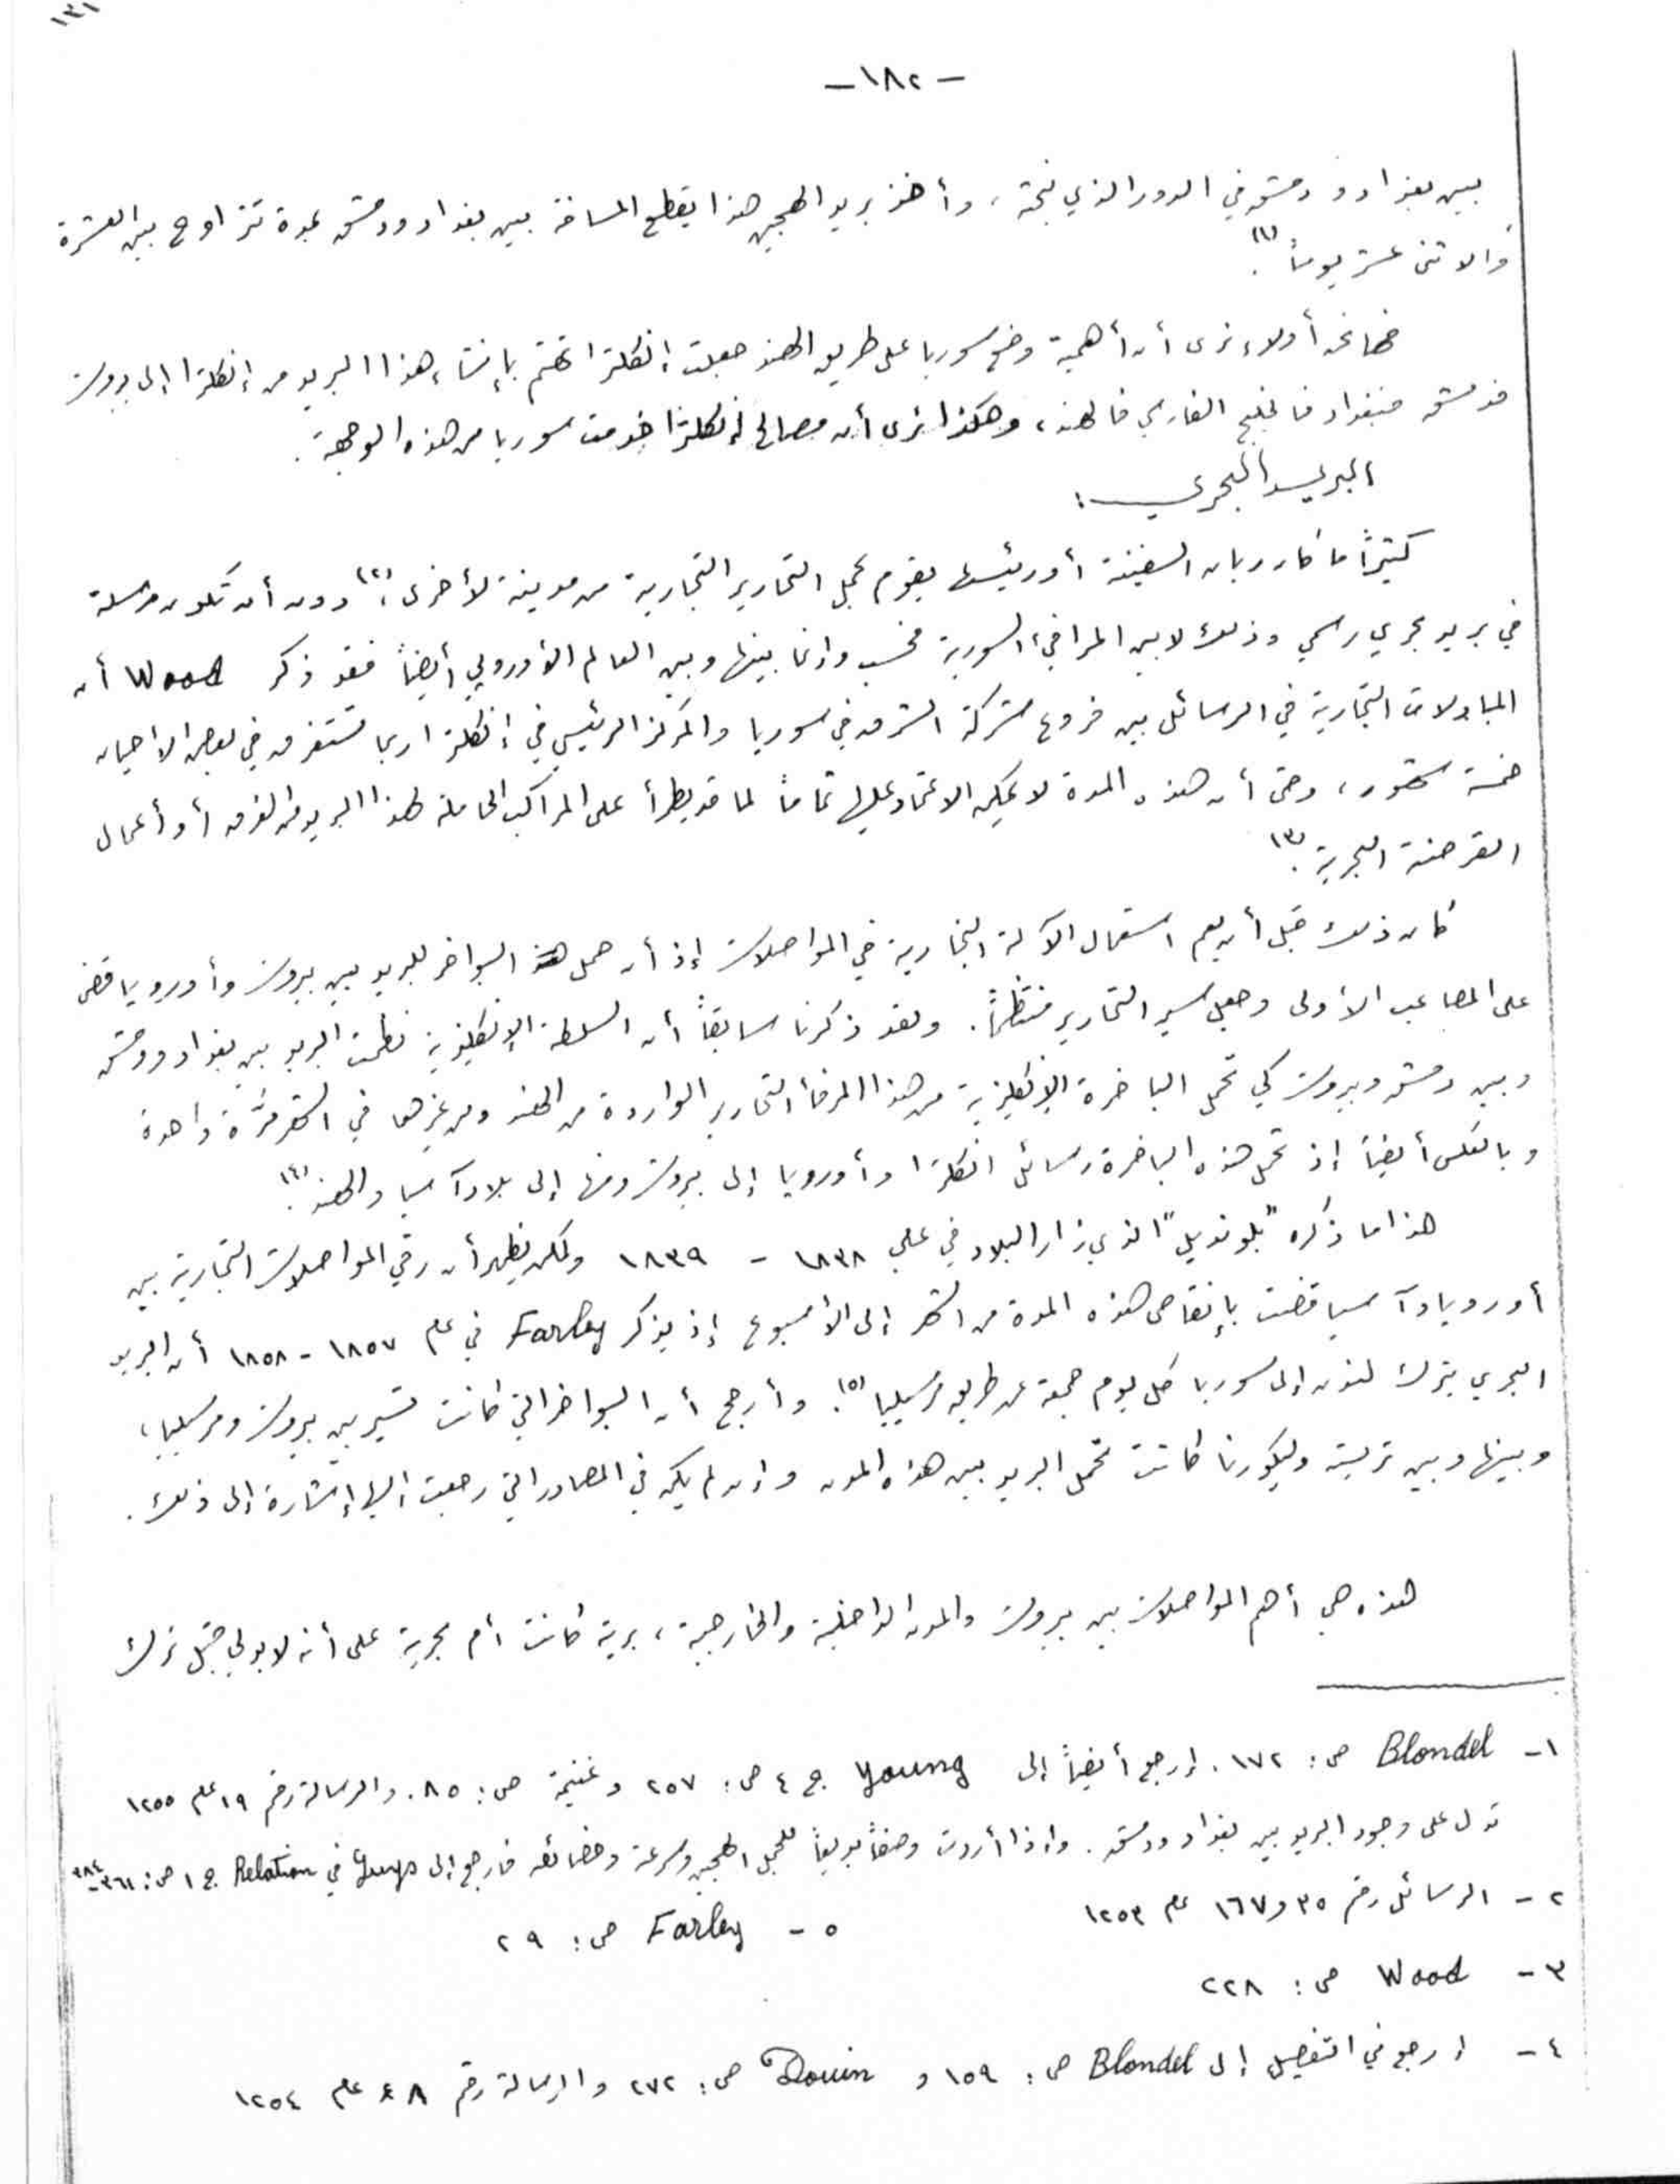 ١٣١
- ١٨٢ -
بين بغداد ودمشق في الدور الذي نبحثه، وأخذ بريد الهجين هذا يقطع المسافة بين بغداد ودمشق بمدة تتراوح بين العشرة
والاثني عشر يوماً (١).
فها نحن أولاء نرى أن أهمية وضع سوريا على طريق الهند جعلت إنكلترا تهتم بإنشاء هذا البريد من إنكلترا إلى بيروت
فدمشق فبغداد فالخليج الفارسي فالهند، وهكذا نرى أن مصالح إنكلترا خدمت سوريا من هذه الوجهة.
البريد البحري:
كثيراً ما كان ربان السفينة أو رئيسها يقوم بحمل التحارير التجارية من مدينة لأخرى، (٢) دون أن تكون مرسلة
في بريد بحري رسمي وذلك لا بين المرافئ السورية فحسب وإنما بينها وبين العالم الأوروبي أيضاً فقد ذكر Wood أن
المبادلات التجارية في الرسائل بين فروع شركة الشرق في سوريا والمركز الرئيسي في إنكلترا ربما تستغرق في بعض الاحيان
خمسة شهور، وحتى أن هذه المدة لا يمكن الاعتماد عليها تماماً لما قد يطرأ على المراكب الحاملة لهذا البريد من الغرق أو أعمال
القرصنة البحرية (٣).
كان ذلك قبل أن يعم استعمال الآلة البخارية في المواصلات إذ أن حمل البواخر للبريد بين بيروت وأوروبا قضى
على المصاعب الأولى وجعل سير التحارير منتظماً. ولقد ذكرنا سابقاً أن السلطة الإنكليزية نظمت البريد بين بغداد ودمشق
وبين دمشق وبيروت كي تحمل الباخرة الإنكليزية من هذا المرفأ التحارير الواردة من الهند ومن غيرها في الشهر مرَّة واحدة
وبالعكس أيضاً إذ تحمل هذه الباخرة رسائل انكلترا وأوروبا إلى بيروت ومنها إلى بلاد آسيا والهند (٤).
هذا ما ذكره "بلونديل" الذي زار البلاد في عامي ١٨٣٨ - ١٨٣٩ ولكن يظهر أن رقي المواصلات التجارية بين
أوروبا وآسيا قضت بإنقاص هذه المدة من الشهر إلى الأسبوع إذ يذكر Farley في عام ١٨٥٧ - ١٨٥٨ أن البريد
البحري يترك لندن إلى سوريا كل يوم جمعة عن طريق مرسيليا (٥). وأرجح أن البواخر التي كانت تسير بين بيروت ومرسيليا،
وبينها وبين تريستة وليكورنا كانت تحمل البريد بين هذه المدن وإن لم يكن في المصادر التي رجعت إليها إشارة إلى ذلك.
هذه هي أهم المواصلات بين بيروت والمدن الداخلية والخارجية، برية كانت أم بحرية على أنه لا بد لي قبل ترك
١- Blondel ص: ١٧٢. إرجع أيضاً إلى Young ج ٤ ص: ٢٥٧ وغنيمة ص: ٨٥. والرسالة رقم ١٩ عام ١٢٥٥
تدل على وجود البريد بين بغداد ودمشق. وإذا أردت وصفاً بديعاً للجمل الهجين وسرعته وخصائصه فارجع إلى Guys في Relation ج ١ ص: ٣٦١-٣٨٤
٢- الرسائل رقم ٣٥ و١٦٧ عام ١٢٥٣
٥- Farley ص: ٢٩
٣- Wood ص: ٢٢٨
٤- إرجع في التفصيل إلى Blondel ص: ١٥٩ و Douin ص: ٢٧٢ والرسالة رقم ٤٨ عام ١٢٥٤